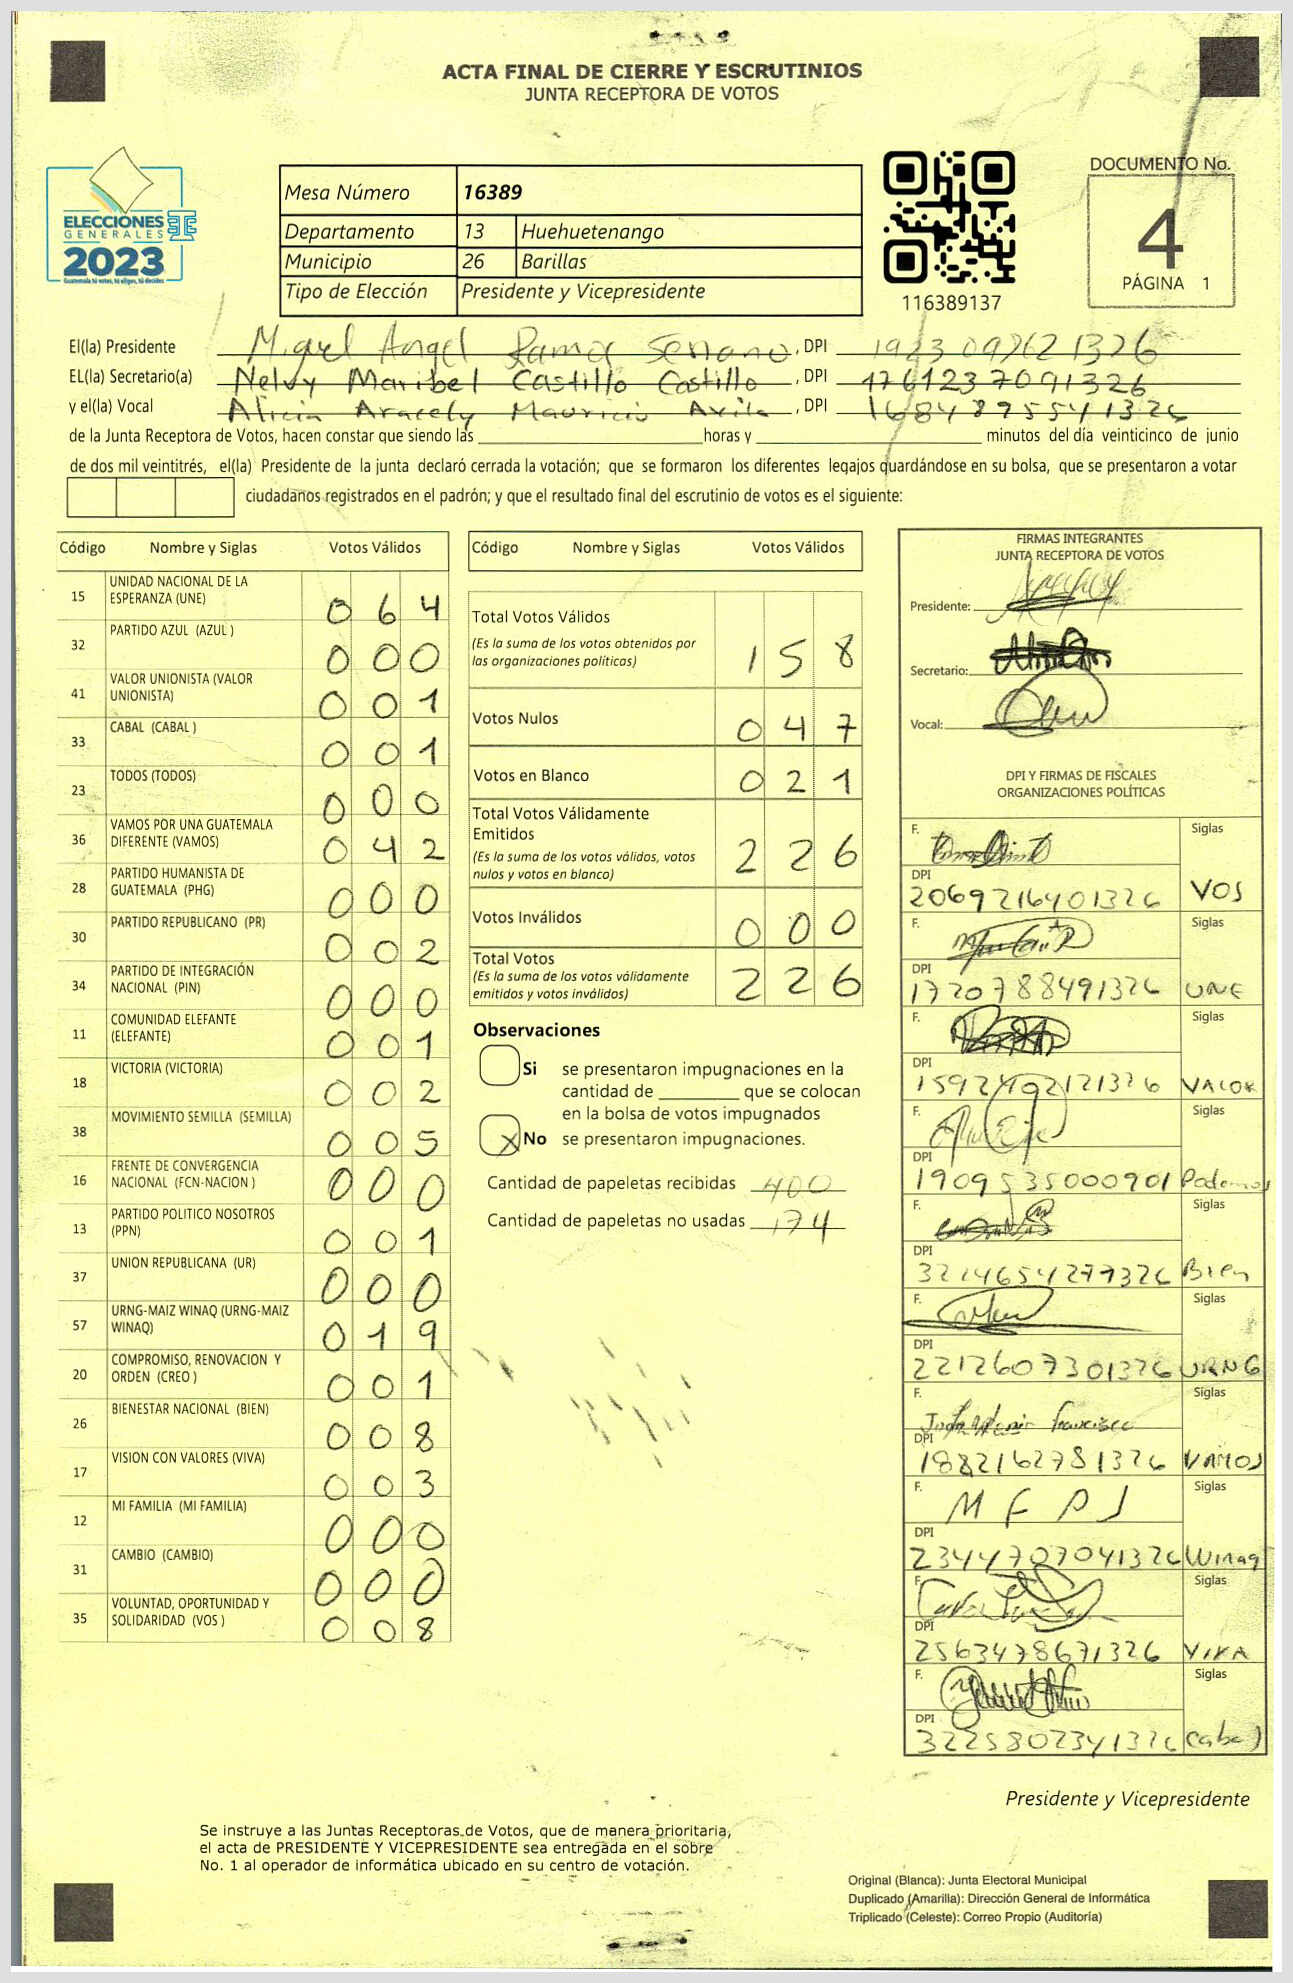 ACTA FINAL DE CIERRE Y ESCRUTINIOS
JUNTA RECEPTORA DE VOTOS
ELECCIONES
GENERALES
2023
Guatemala tú votas, tú eliges, tú decides
Mesa Número 16389
Departamento 13 Huehuetenango
Municipio 26 Barillas
Tipo de Elección Presidente y Vicepresidente
116389137
DOCUMENTO No.
4
PÁGINA 1
El(la) Presidente Miguel Angel Ramos Serrano, DPI
EL(la) Secretario(a) Nelvy Maribel Castillo Castillo, DPI 1761237091326
y el(la) Vocal Alicia Aracely Mauricio Avila, DPI 1684895541326
de la Junta Receptora de Votos, hacen constar que siendo las horas y minutos del día veinticinco de junio
de dos mil veintitrés, el(la) Presidente de la junta declaró cerrada la votación; que se formaron los diferentes legajos guardándose en su bolsa, que se presentaron a votar
ciudadanos registrados en el padrón; y que el resultado final del escrutinio de votos es el siguiente:
Código Nombre y Siglas Votos Válidos
15 UNIDAD NACIONAL DE LA ESPERANZA (UNE) 0 6 4
32 PARTIDO AZUL (AZUL ) 0 0 0
41 VALOR UNIONISTA (VALOR UNIONISTA) 0 0 1
33 CABAL (CABAL ) 0 0 1
23 TODOS (TODOS) 0 0 0
36 VAMOS POR UNA GUATEMALA DIFERENTE (VAMOS) 0 4 2
28 PARTIDO HUMANISTA DE GUATEMALA (PHG) 0 0 0
30 PARTIDO REPUBLICANO (PR) 0 0 2
34 PARTIDO DE INTEGRACIÓN NACIONAL (PIN) 0 0 0
11 COMUNIDAD ELEFANTE (ELEFANTE) 0 0 1
18 VICTORIA (VICTORIA) 0 0 2
38 MOVIMIENTO SEMILLA (SEMILLA) 0 0 5
16 FRENTE DE CONVERGENCIA NACIONAL (FCN-NACION ) 0 0 0
13 PARTIDO POLITICO NOSOTROS (PPN) 0 0 1
37 UNION REPUBLICANA (UR) 0 0 0
57 URNG-MAIZ WINAQ (URNG-MAIZ WINAQ) 0 1 9
20 COMPROMISO, RENOVACION Y ORDEN (CREO ) 0 0 1
26 BIENESTAR NACIONAL (BIEN) 0 0 8
17 VISION CON VALORES (VIVA) 0 0 3
12 MI FAMILIA (MI FAMILIA) 0 0 0
31 CAMBIO (CAMBIO) 0 0 0
35 VOLUNTAD, OPORTUNIDAD Y SOLIDARIDAD (VOS ) 0 0 8
Código Nombre y Siglas Votos Válidos
Total Votos Válidos 1 5 8
(Es la suma de los votos obtenidos por
las organizaciones políticas)
Votos Nulos 0 4 7
Votos en Blanco 0 2 1
Total Votos Válidamente
Emitidos 2 2 6
(Es la suma de los votos válidos, votos
nulos y votos en blanco)
Votos Inválidos 0 0 0
Total Votos 2 2 6
(Es la suma de los votos válidamente
emitidos y votos inválidos)
Observaciones
Si se presentaron impugnaciones en la
cantidad de que se colocan
en la bolsa de votos impugnados
X No se presentaron impugnaciones.
Cantidad de papeletas recibidas 400
Cantidad de papeletas no usadas 174
FIRMAS INTEGRANTES
JUNTA RECEPTORA DE VOTOS
Presidente:
Secretario:
Vocal:
DPI Y FIRMAS DE FISCALES
ORGANIZACIONES POLÍTICAS
F. Siglas
DPI
2069216401326 VOS
F. Siglas
DPI
1720788491326 UNE
F. Siglas
DPI
VALOR
F. Siglas
DPI
1909535000901 Podemos
F. Siglas
DPI
3214654277326 Bien
F. Siglas
DPI
2212607301326 URNG
F. Siglas
Francisco
DPI
1882162781326 VAMOS
F. Siglas
M F P J
DPI
2344707041326 Winaq
F. Siglas
DPI
2563478671326 VIVA
F. Siglas
DPI
3225802341326 Cabal
Presidente y Vicepresidente
Se instruye a las Juntas Receptoras de Votos, que de manera prioritaria,
el acta de PRESIDENTE Y VICEPRESIDENTE sea entregada en el sobre
No. 1 al operador de informática ubicado en su centro de votación.
Original (Blanca): Junta Electoral Municipal
Duplicado (Amarilla): Dirección General de Informática
Triplicado (Celeste): Correo Propio (Auditoría)